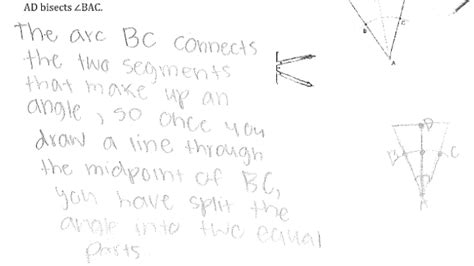 AD bisects ∠BAC.
The arc BC connects
the two segments
that make up an
angle, so once you
draw a line through
the midpoint of BC,
you have split the
angle into two equal
parts.
B
C
A
D
B
C
A